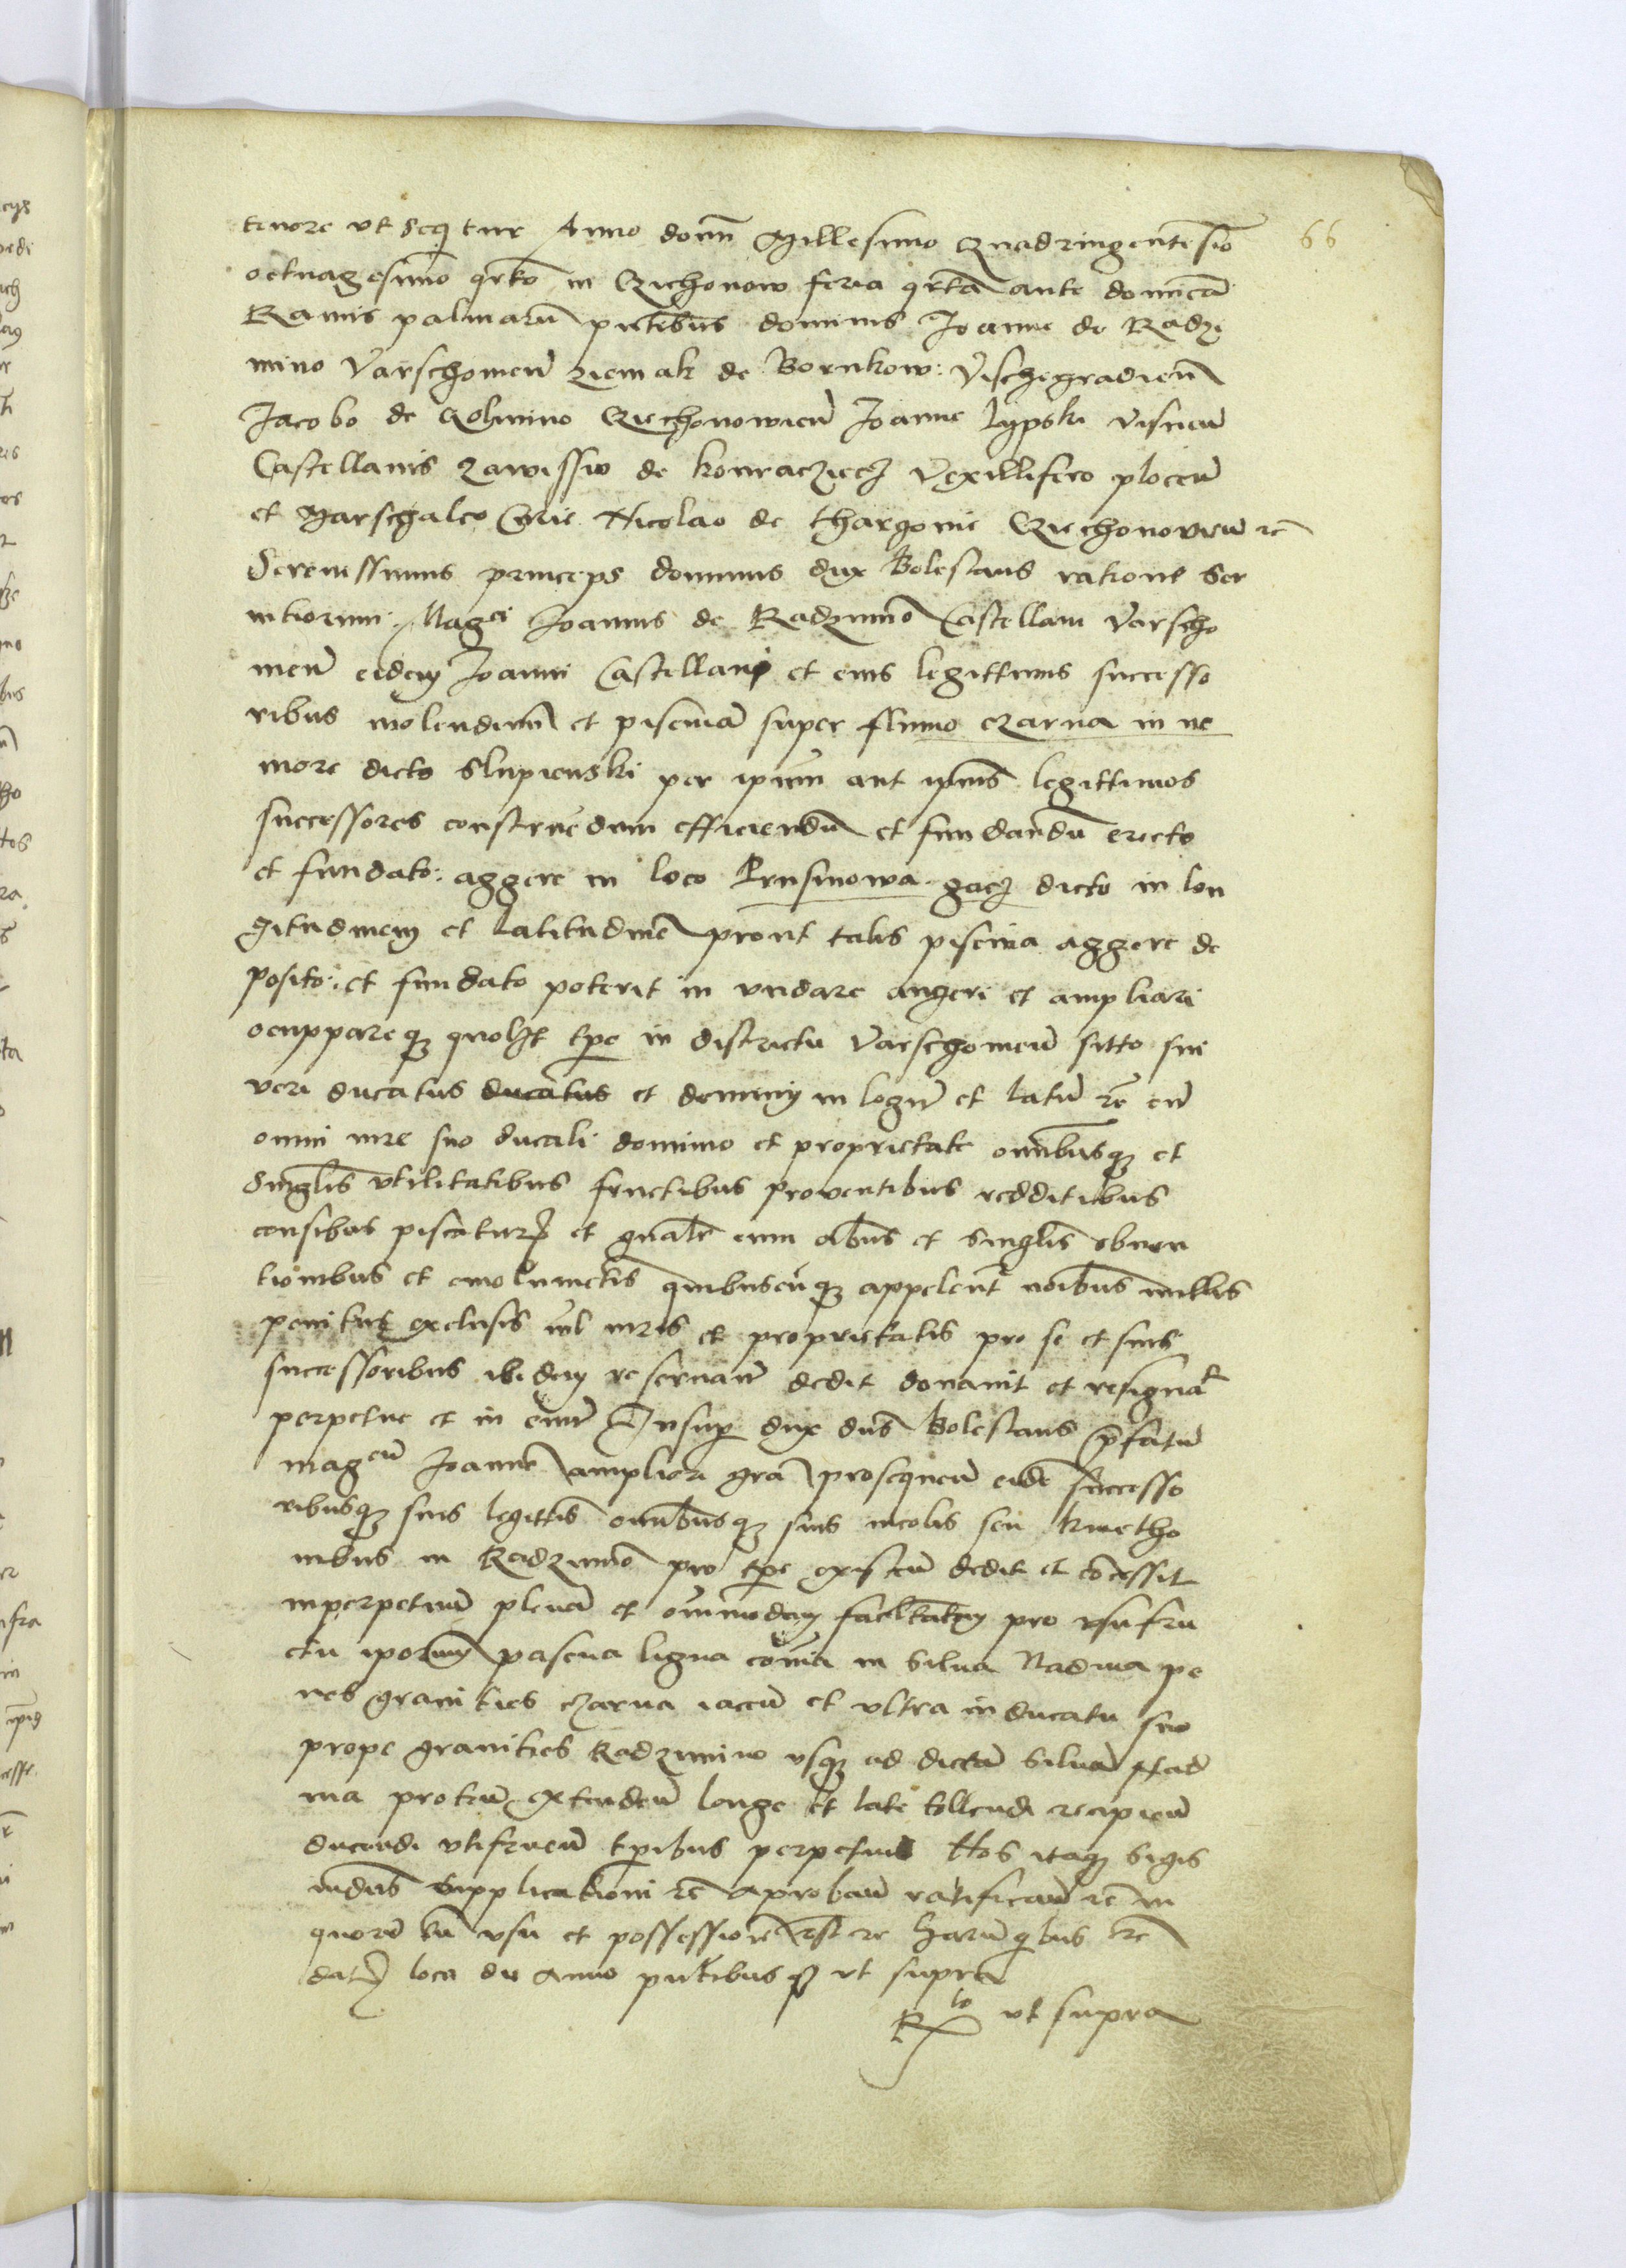 66
tenore vt seq̄tur Anno domī Millesimo Quadringentesio
octuagesimo qrto in Czẏechonow feria qrta ante domicā
Ramis palmarū pn̄tibus dominis Joanne de Radzi
mino Varschouien̄ Ziemak de Bornkow: Vischegradien̄
Jacobo de Golmino Czechonowien̄ Joanne lypski Visnen̄
Castellanis Zawissio de Kouraczicz Vexillifero plocen̄
et Marschalco Curie Nicolao de thargonie Czechonowien̄ rc̄
Serenissimus princeps dominus dux Bolescaus ratione ser
uitiorum Mag^ci Joannis de Radzimino Castellani Varscho
uien̄ eidem Joanni Castellano et eius legittimis successo
ribus molendinū et piscinā super fluuio czarna in ne
more dicto Slupienski per ipsum aut ipsius legittimos
successores construēdum efficiendū et fundandū erecto
et fundato: aggere in loco Prusinowa gacz dicto in lon
gitudinem et latitudinē prout talis piscina aggere de
posito: et fundato poterit in vndare augeri et ampliari
occuppareq̄ quolꝫt tp̄e in districtu Varschouien̄ sitto sui
veri ducatus ducatus et dominy in longū et latū rc̄ cū
omni iure suo ducali dominio et proprietate omībusq̄ et
singlis vtilitatibus fructibus prouentibus redditibus
censibus piscaturꝫ et gnalr̄ cum oībus et singlis obuen
tionibus et emolumētis quibuscūq̄ appelent̄ noibus nullis
penitus exclusis nil iuris et proprietatis pro se et suis
successoribus ibidem reseruan̄ dedit donauit et resignat
perpetue et in euū Insup dux dn̄s Bolescaus p̄fatū
mag^cū Joannē ampliori grā prosequen̄ eidē successo
ribusq̄ suis legittis omībusq̄ suis incolis seu kmetho
nibus in Radzimino pro tp̄e existen̄ dedit et cōcessit
inperpetuū plenā et omīmodam facultatem pro vsufru
ctu iporum pascua ligna omīa in silua Nadma pe
nes granities czarna iacen̄ et vltra in ducatu suo
prope granities Radzimino vsq̄ ad dictā siluā Nad
ma proten̄ extenden̄ longe et late tollendi recipien̄
ducendi vtifruen̄ tp̄ibus perpetuis Nos itaq̄ Sigis
mūdus supplicationi rc̄ Aproban̄ ratifican̄ rc̄ in
quorū vsu et possessione est rc̄ Harū qbus rc̄
datꝫ loca die Anno pn̄tibusq̄ vt supra
R^to vt supra